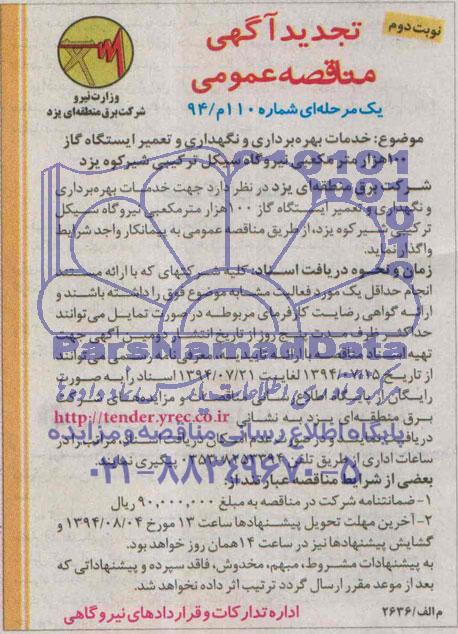 نوبت دوم
تجدید آگهی
مناقصه عمومی
یک مرحله‌ای شماره ۱۱۰م/۹۴
وزارت نیرو
شرکت برق منطقه‌ای یزد
موضوع: خدمات بهره‌برداری و نگهداری و تعمیر ایستگاه گاز
۱۰۰هزار متر مکعبی نیروگاه سیکل ترکیبی شیرکوه یزد
شرکت برق منطقه‌ای یزد در نظر دارد جهت خدمات بهره‌برداری
و نگهداری و تعمیر ایستگاه گاز ۱۰۰هزار مترمکعبی نیروگاه سیکل
ترکیبی شیرکوه یزد، از طریق مناقصه عمومی به پیمانکار واجد شرایط
واگذار نماید.
زمان و نحوه دریافت اسناد: کلیه شرکتهای که با ارائه مستند
انجام حداقل یک مورد فعالیت مشابه موضوع فوق را داشته باشند و
ارائه گواهی رضایت کارفرمای مربوطه در صورت تمایل می‌توانند
حداکثر ظرف مدت پنج روز از تاریخ انتشار دومین آگهی جهت
تهیه اسناد مناقصه با ارائه معرفی‌نامه رسمی می‌توانند
از تاریخ ۱۳۹۴/۰۷/۱۵ لغایت ۱۳۹۴/۰۷/۲۱ اسناد را به صورت
رایگان از پایگاه اطلاع رسانی مناقصات و مزایده‌های شرکت
برق منطقه‌ای یزد به نشانی http://tender.yrec.co.ir
دریافت نمایند و در صورت عدم امکان دریافت اسناد مراتب را در
ساعات اداری از طریق تلفن پیگیری نمایند.
بعضی از شرایط مناقصه عبارتند از:
۱- ضمانتنامه شرکت در مناقصه به مبلغ ۹۰,۰۰۰,۰۰۰ ریال
۲- آخرین مهلت تحویل پیشنهادها ساعت ۱۳ مورخ ۱۳۹۴/۰۸/۰۴ و
گشایش پیشنهادها نیز در ساعت ۱۴ همان روز خواهد بود.
به پیشنهادات مشروط، مبهم، مخدوش، فاقد سپرده و پیشنهاداتی که
بعد از موعد مقرر ارسال گردد ترتیب اثر داده نخواهد شد.
م الف/۲۶۳۶
اداره تدارکات و قراردادهای نیروگاهی
ParsNamadData
پایگاه اطلاع رسانی مناقصه و مزایده
۰۲۱-۸۸۳۴۹۶۷۰-۵